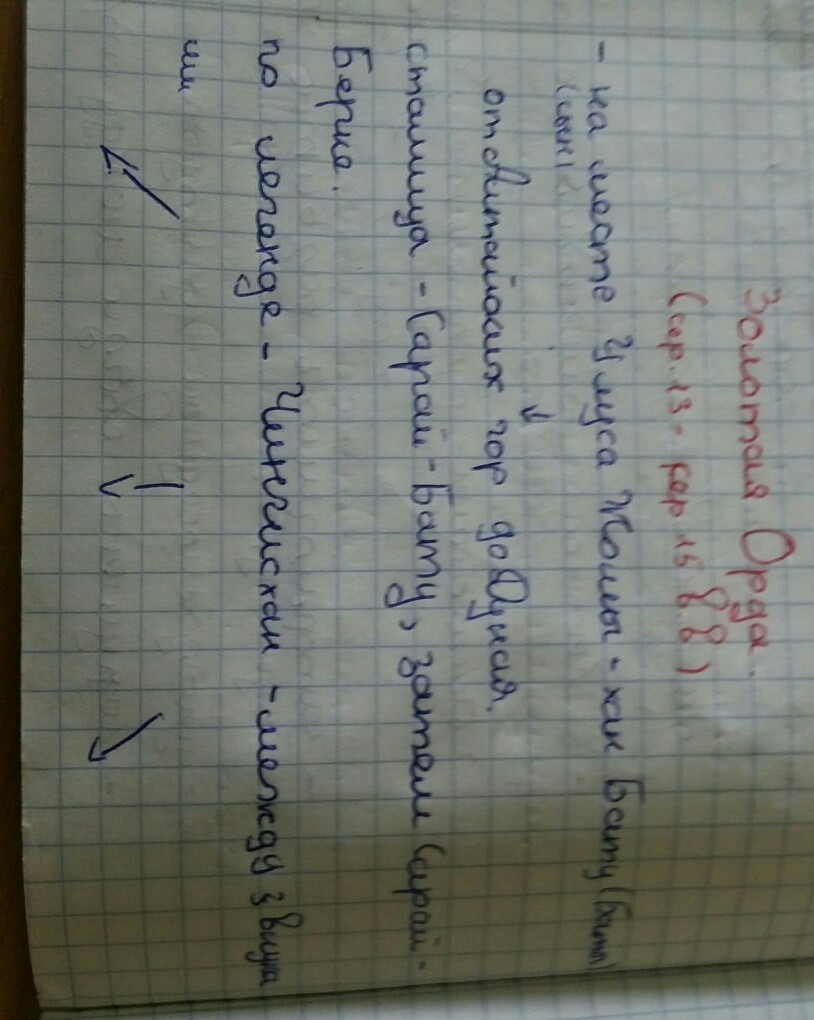 Золотая Орда.
(сер. 13 - сер 15 в.в)
- на месте Улуса Жошы - хан Бату (Батый)
(сын)
от Алтайских гор до Дуная.
столица - Сарай-Бату, затем Сарай-
Берке.
по легенде - Чингисхан - между 3 внука
ми